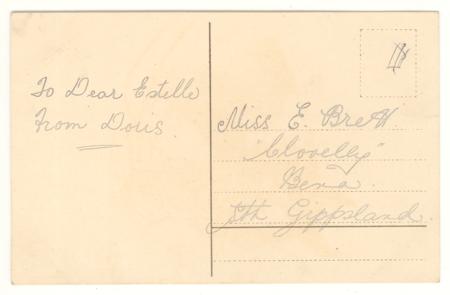 To Dear Estelle
From Doris
Miss E. Brett.
"Clovelly"
Bena.
Sth Gippsland.